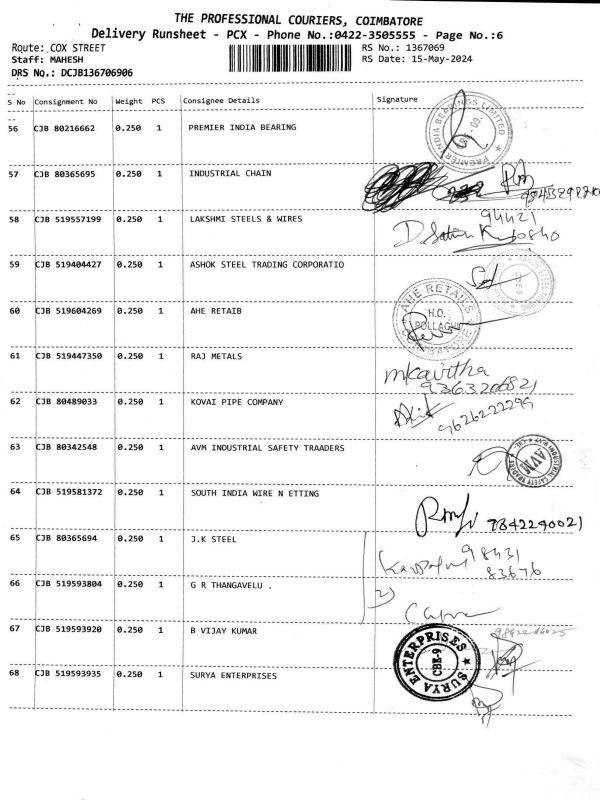 THE PROFESSIONAL COURIERS, COIMBATORE
Delivery Runsheet - PCX - Phone No.:0422-3505555 - Page No.:6
Route: COX STREET RS No.: 1367069
Staff: MAHESH RS Date: 15-May-2024
DRS No.: DCJB136706906
S No Consignment No Weight PCS Consignee Details Signature
56 CJB 80216662 0.250 1 PREMIER INDIA BEARING
PREMIER INDIA BEARINGS LIMITED
57 CJB 80365695 0.250 1 INDUSTRIAL CHAIN
58 CJB 519557199 0.250 1 LAKSHMI STEELS & WIRES
94421
59 CJB 519404427 0.250 1 ASHOK STEEL TRADING CORPORATIO
60 CJB 519604269 0.250 1 AHE RETAIB
AHE RETAILS
H.O.
POLLACHI
COIMBATORE
61 CJB 519447350 0.250 1 RAJ METALS
mkavitha
9363206821
62 CJB 80489033 0.250 1 KOVAI PIPE COMPANY
9626222299
63 CJB 80342548 0.250 1 AVM INDUSTRIAL SAFETY TRAADERS
AVM INDUSTRIAL SAFETY TRADERS
AVM
64 CJB 519581372 0.250 1 SOUTH INDIA WIRE N ETTING
9842290021
65 CJB 80365694 0.250 1 J.K STEEL
98431
83676
66 CJB 519593804 0.250 1 G R THANGAVELU .
2)
67 CJB 519593920 0.250 1 B VIJAY KUMAR
68 CJB 519593935 0.250 1 SURYA ENTERPRISES
SURYA ENTERPRISES
CBE-9